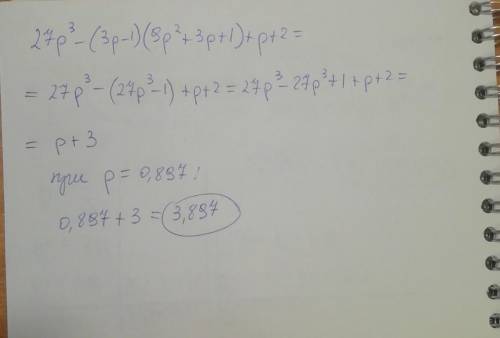 27p³ - (3p-1)(9p² + 3p + 1) + p + 2 =
= 27p³ - (27p³ - 1) + p + 2 = 27p³ - 27p³ + 1 + p + 2 =
= p + 3
при p = 0,897:
0,897 + 3 = 3,897